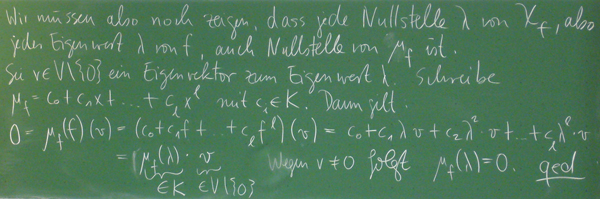 Wir müssen also noch zeigen, dass jede Nullstelle λ von χ_f, also
jeder Eigenwert λ von f, auch Nullstelle von μ_f ist.
Sei v∈V\{0} ein Eigenvektor zum Eigenwert λ. Schreibe
μ_f = c₀+c₁x+...+c_ℓ x^ℓ mit c_i∈K. Dann gilt
0 = μ_f(f)(v) = (c₀+c₁f+...+c_ℓ f^ℓ)(v) = c₀+c₁λv+c₂λ²·v+...+c_ℓλ^ℓ·v
= μ_f(λ)·v Wegen v≠0 folgt μ_f(λ)=0. qed
∈K ∈V\{0}